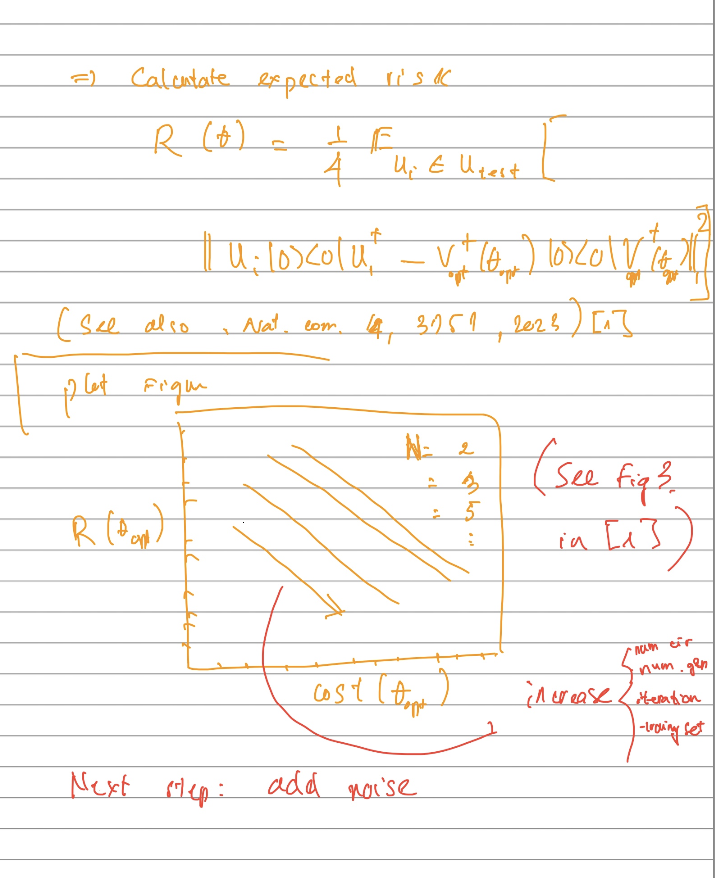 =) Calculate expected risk
R (θ) = 1/4 E_{U_i ∈ U_test} [
|| U_i |0><0| U_i^† − V_opt^†(θ_opt) |0><0| V_opt^†(θ_opt) ||_1^2 ]
(See also, Nat. com. 4, 3751, 2023) [1]
plot Figur
N= 2
= 3
= 5
:
R (θ_opt)
cost (θ_opt)
(See Fig 3.
in [1])
increase
num cir
num. gen
iteration
Next step: add noise